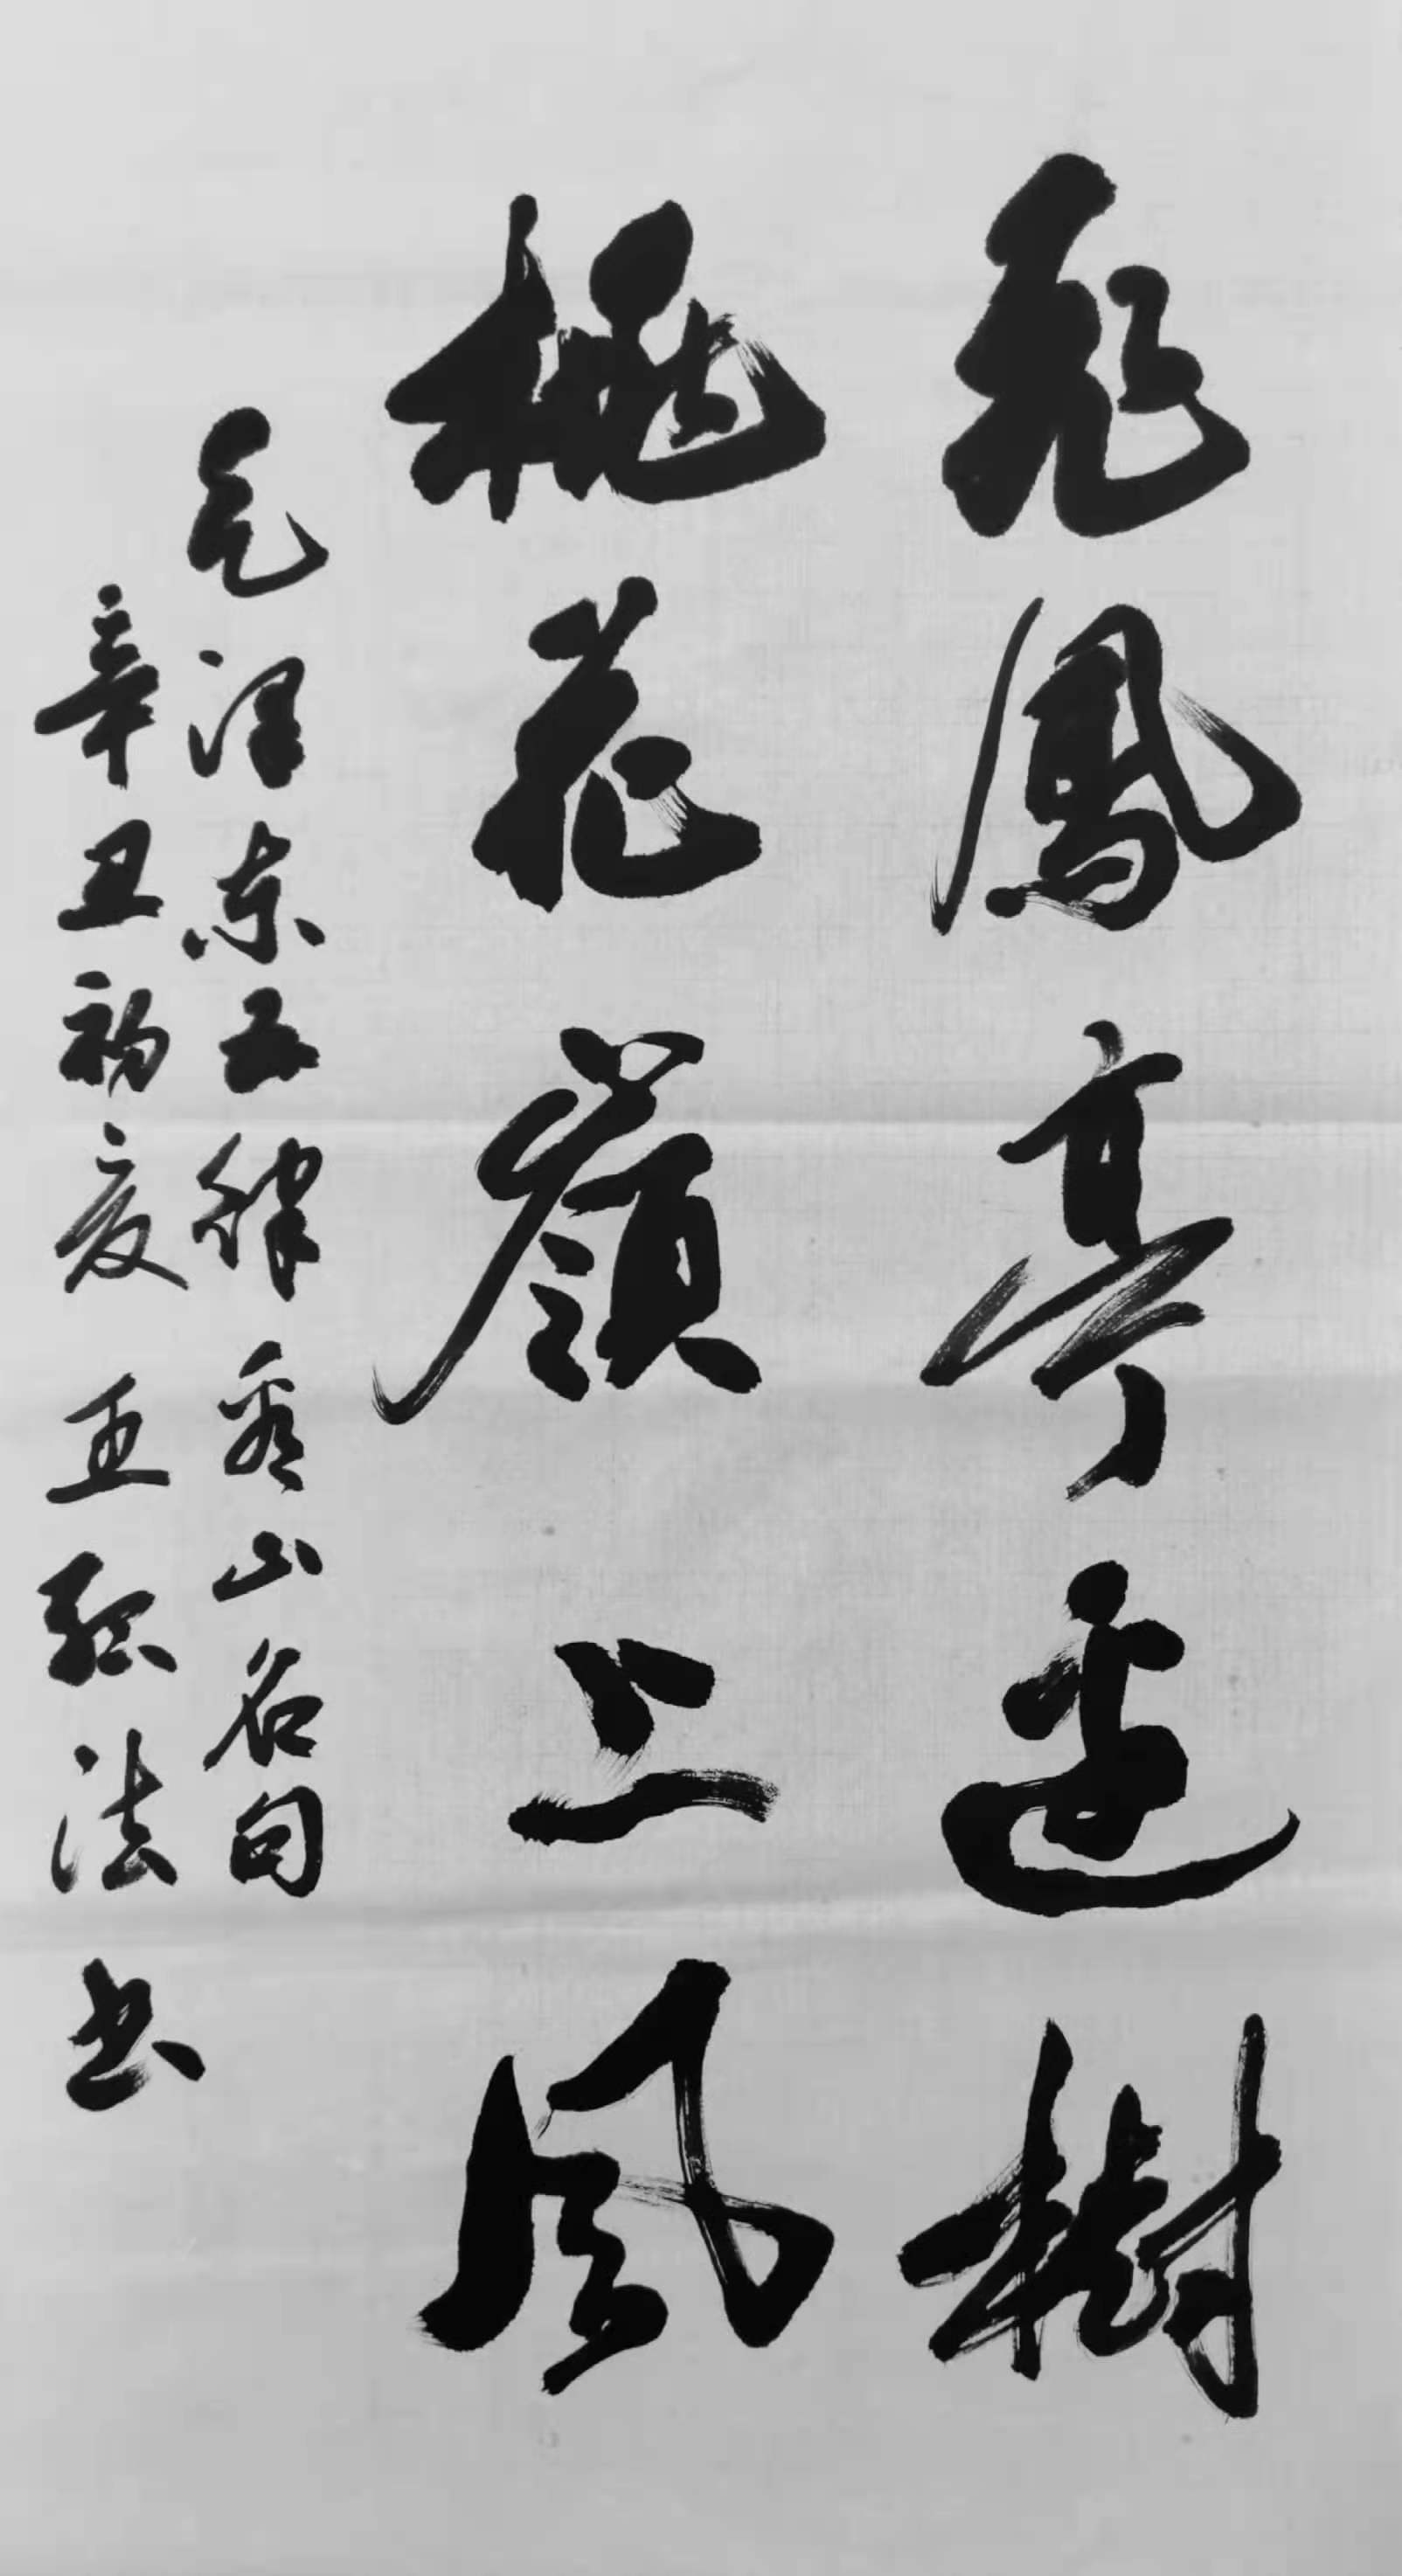 飛鳳亭邊樹
桃花嶺上風
毛澤东五律看山名句
辛丑初夏 王強法书